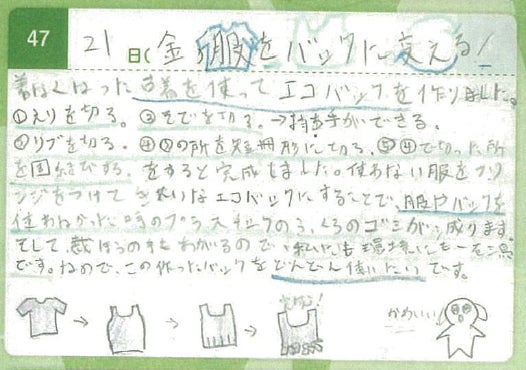 47
21日(金)服をバックに変える!
着なくなった古着を使ってエコバックを作りました。
①えりを切る。③そでを切る。→持ち手ができる。
②リブを切る。④③の所を短冊形に切る。⑤④で切った所
を固結びする。をすると完成しました。使わない服をアリ
ンジをつけてきれいなエコバックにすることで、服やバックを
使わなかった時のプラスチックのふくろのゴミが減ります。
そして、裁ほうの手もわかるので、私にも環境にも一石二鳥
です。なので、この作ったバックをどんどん使いたいです。
完成!
かわいい